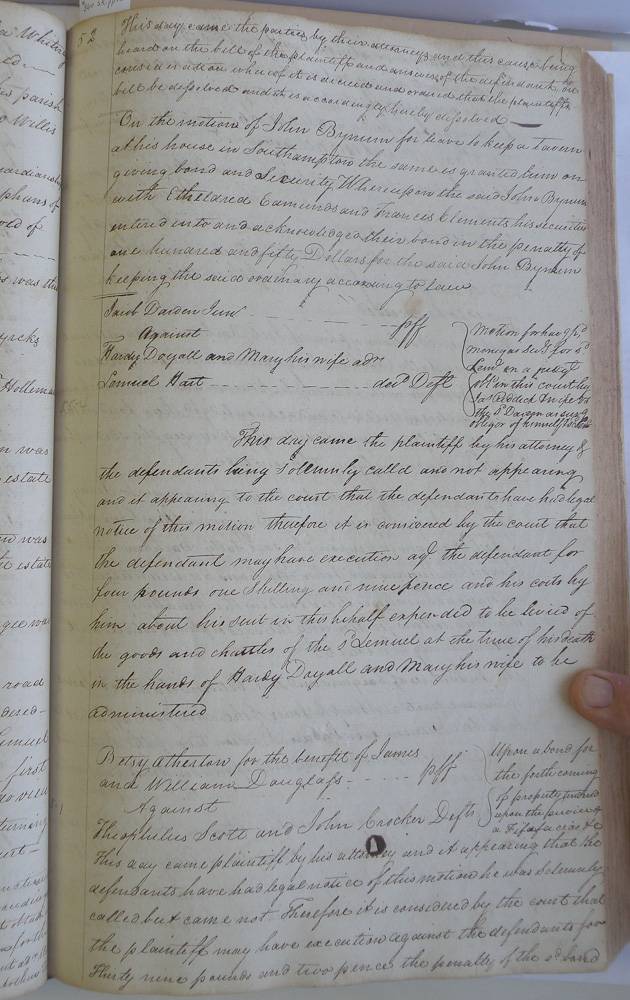 52
This day came the parties by their attorneys and this cause being
heard on the bill of the plaintiff and answers of the defendants on
consideration whereof it is decreed and ordered that the plaintiffs
bill be desolved and it is accordingly hereby desolved
On the motion of John Bynum for leave to keep a Tavern
at his house in Southampton the same is granted him on
giving bond and Security, Whereupon the said John Bynum
with Etheldred Edmunds and Frances Clements his securities
entered into and acknowledged their bond in the penalty of
one hundred and fifty Dollars for the said John Bynum
keeping the said ordinary according to law
Jacob Darden Junr plf
Against
Hardy Doyall and Mary his wife admr
Lemuel Hart decd Defts
Motion for
moneys for sd
Lem on a
in this court by
the sd Darden as
obligor of himself
This day came the plaintiff by his attorney &
the defendants being Solemnly calld and not appearing
and it appearing to the court that the defendants have had legal
notice of this motion therefore it is considered by the court that
the defendant may have execution agt the defendant for
four pounds one Shilling and nine pence and his costs by
him about his suit in this behalf expended to be levied of
the goods and chattles of the sd Lemuel at the time of his death
in the hands of Hardy Doyall and Mary his wife to be
administered
Betsy Atherton for the benefit of James
and William Douglass plff
Against
Theophilus Scott and John Crocker Defts
Upon a bond for
the forthcoming
of property
upon the service of
a Fifa facias &c
This day came plaintiff by his attorney and it appearing that the
defendants have had legal notice of this motion he was solemnly
called but came not Therefore it is considered by the court that
the plaintiff may have execution against the defendants for
Thirty nine pounds and two pence the penalty of the sd bond
a Whiting
his parish
o Willis
uardianship
phans of
oved of
s was the
yrcks
Holleman
n was
estate
n was
te estate
gee was
road
dered
Lemuel
first
o view
turning